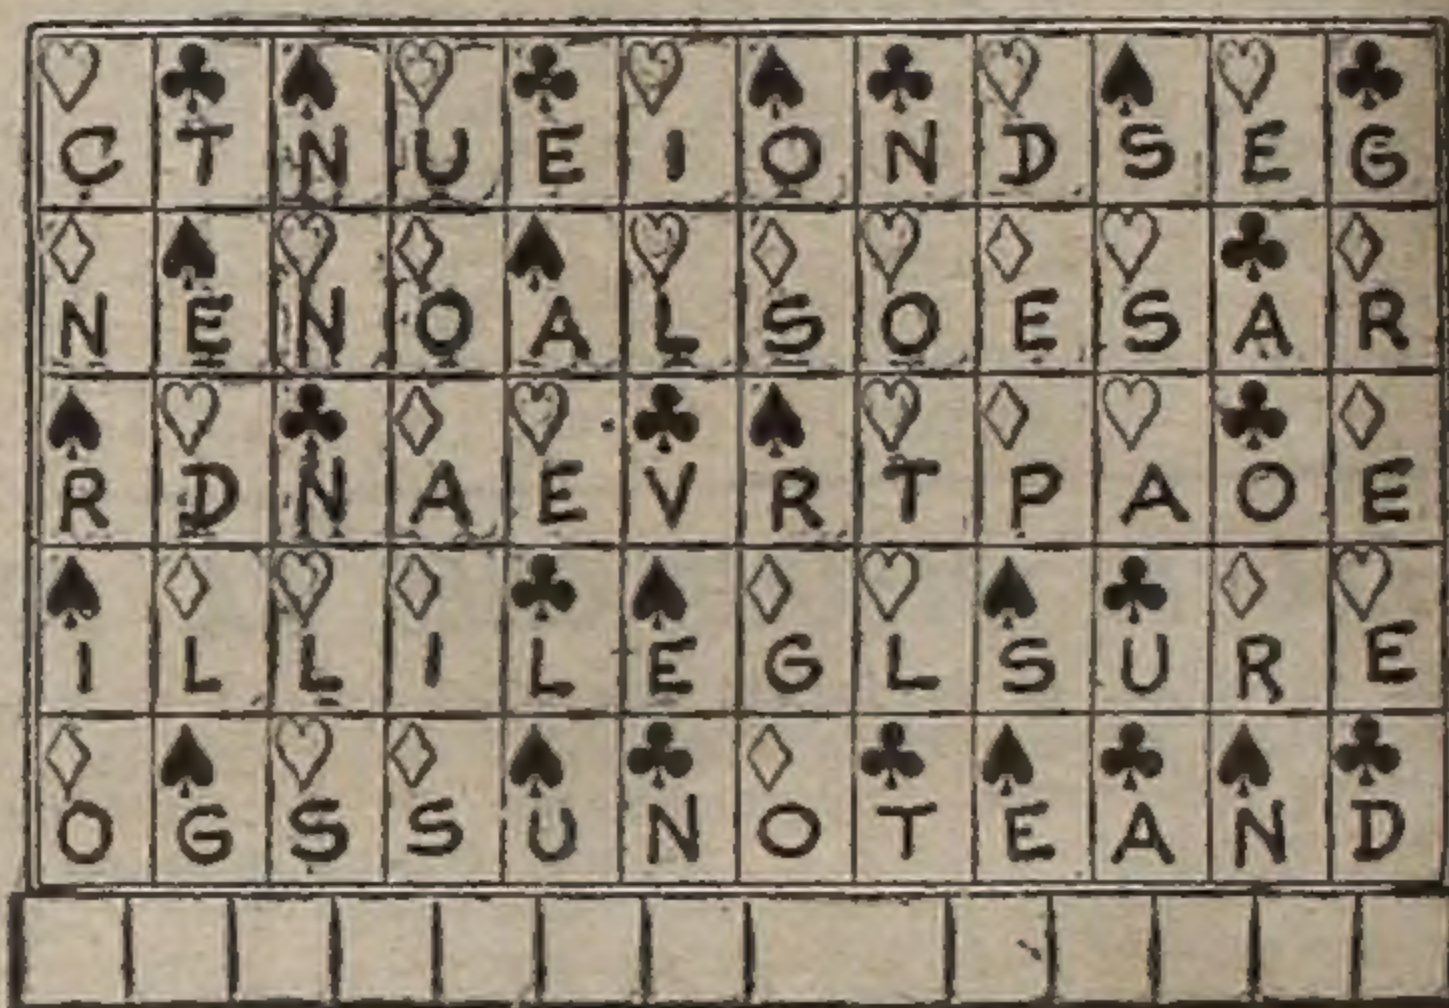 C T N U E I O N D S E G
N E N O A L S O E S A R
R D N A E V R T P A O E
I L L I L E G L S U R E
O G S S U N O T E A N D